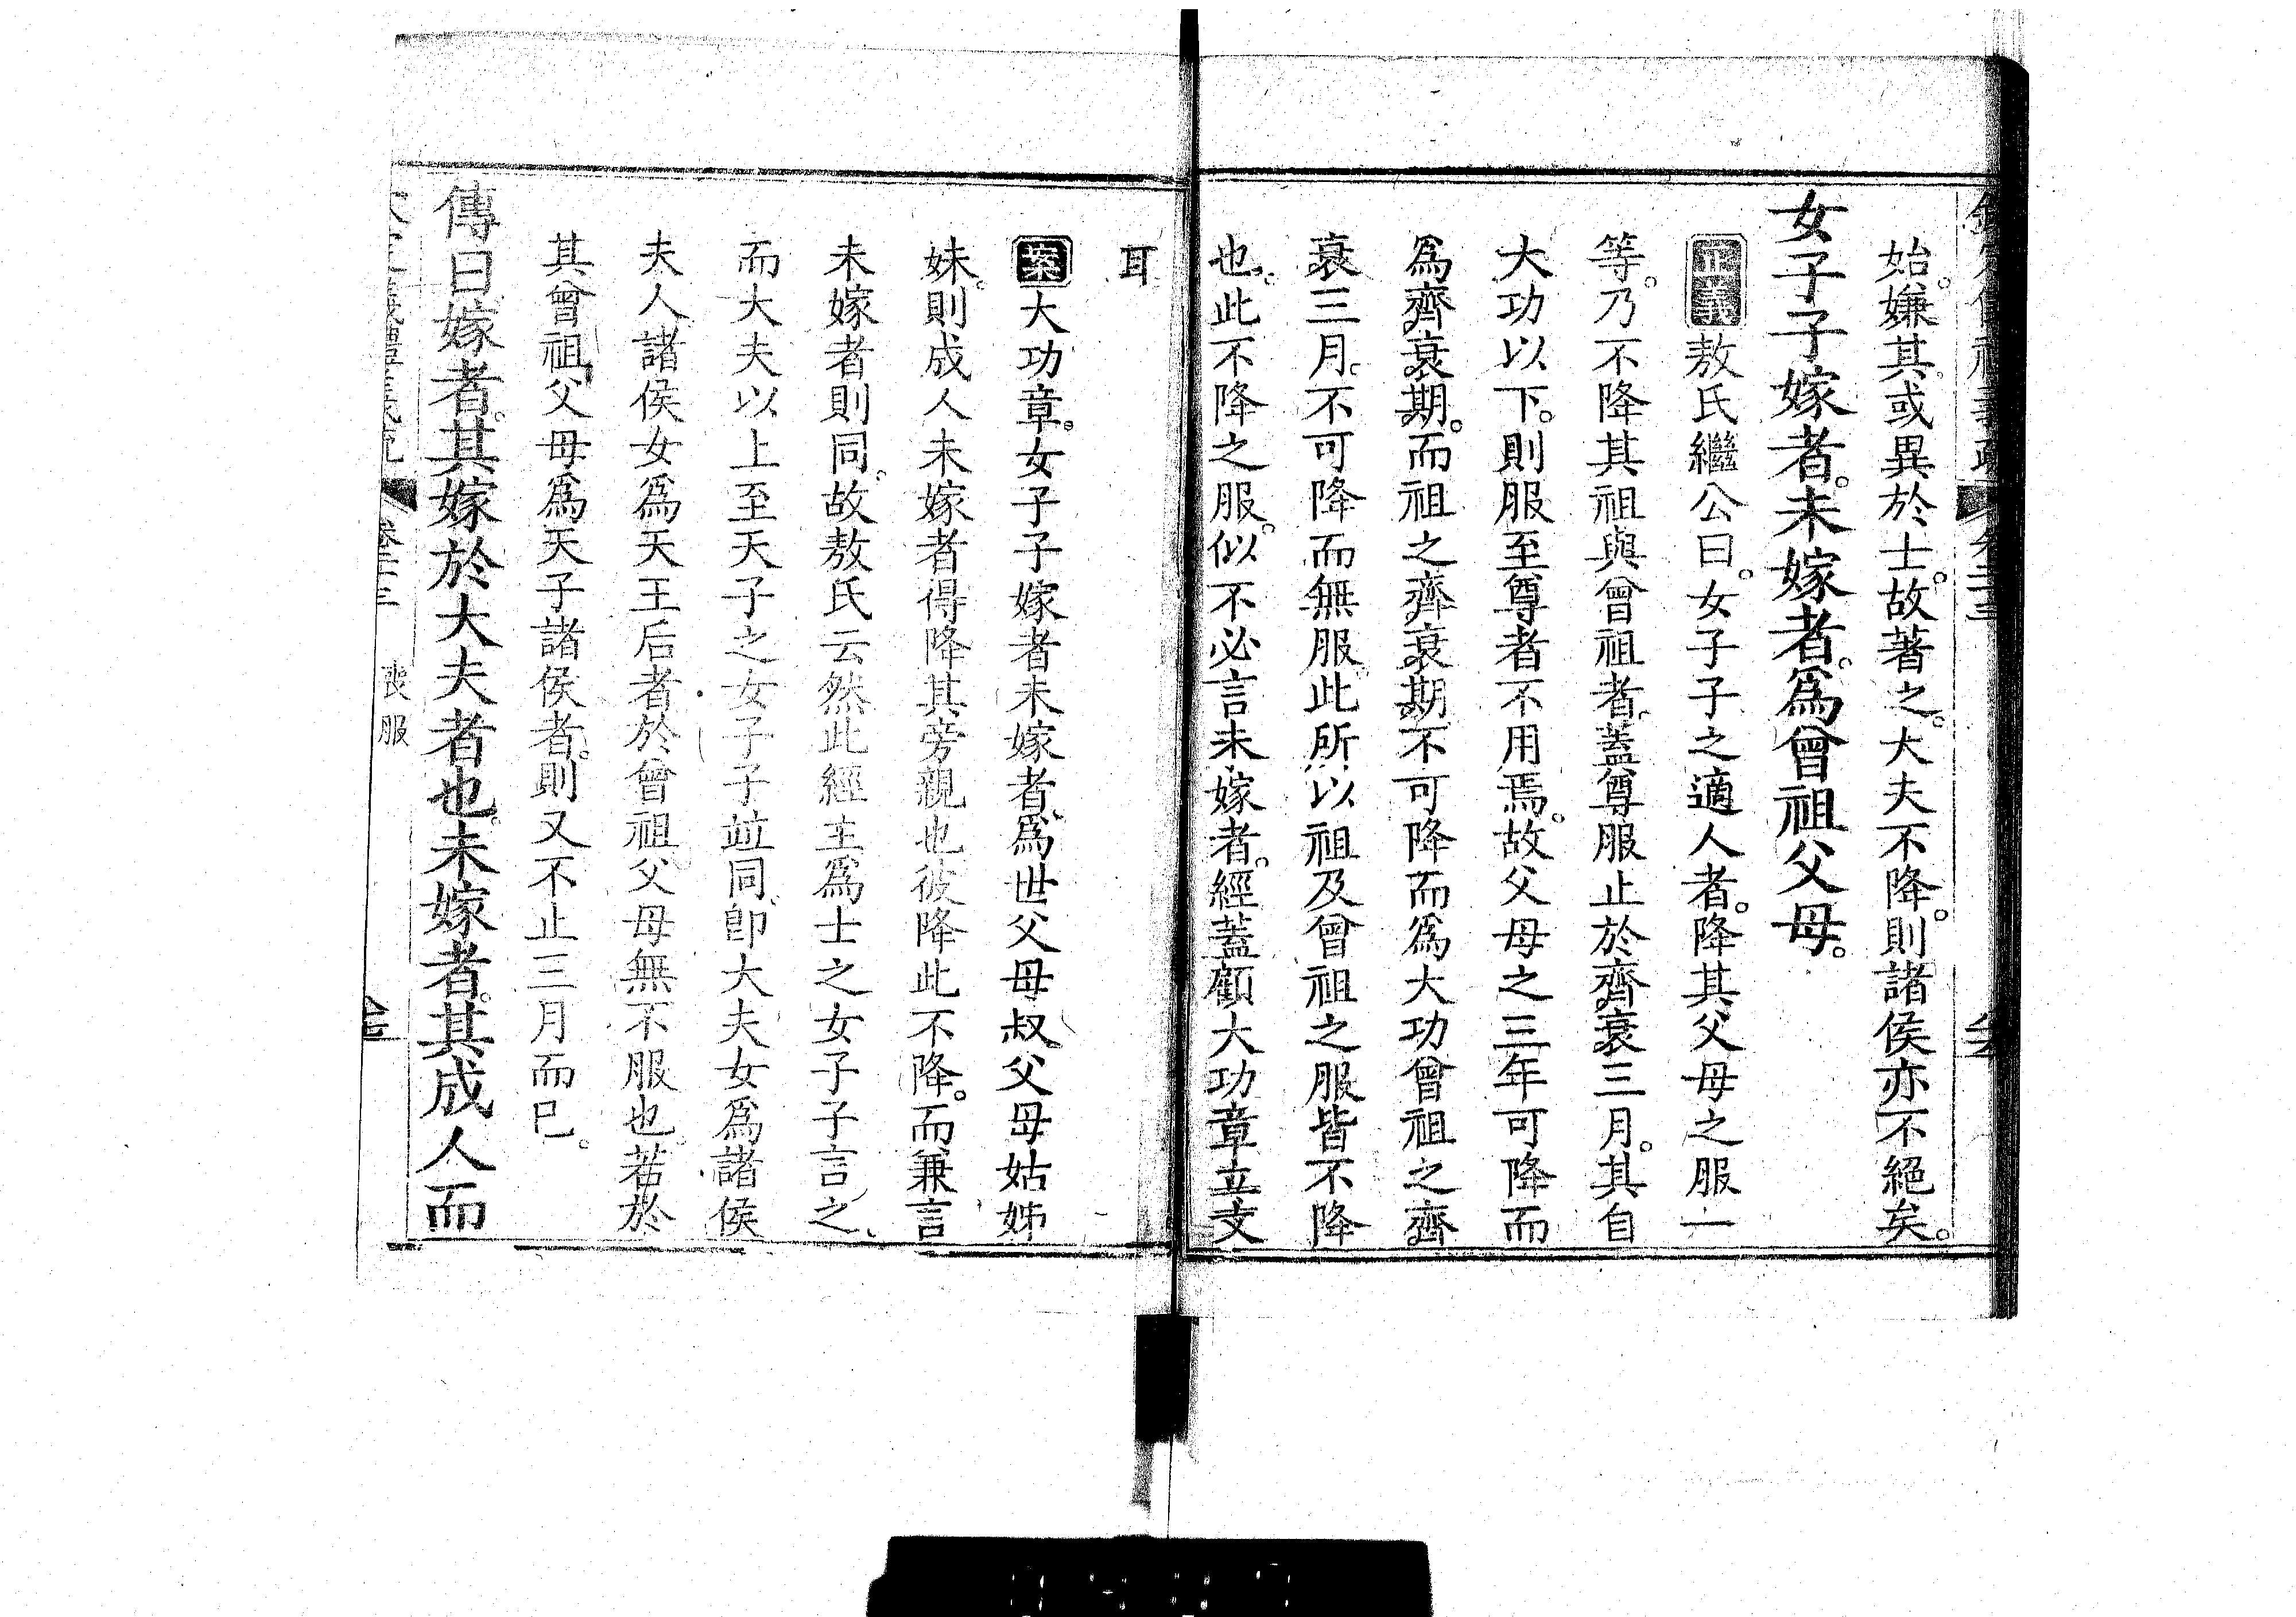 始。嫌其。或異於士。故著之。大夫不降。則諸侯亦不絕矣。
女子子嫁者。未嫁者。爲曾祖父母。
正義敖氏繼公曰。女子子之適人者。降其父母之服一
等。乃不降其祖與曾祖者。蓋尊服止於齊衰三月。其自
大功以下。則服至尊者不用焉。故父母之三年可降而
爲齊衰期。而祖之齊衰期不可降而爲大功曾祖之齊
衰三月。不可降而無服。此所以祖及曾祖之服皆不降
也。此不降之服。似不必言未嫁者。經蓋顧大功章立文
耳
案大功章。女子子嫁者未嫁者。爲世父母叔父母姑姊
妹。則成人未嫁者得降其旁親也彼降此不降。而兼言
未嫁者則同。故敖氏云然此經主爲士之女子子言之、
而大夫以上至天子之女子子竝同、卽大夫女爲諸侯
夫人諸侯女爲天王后者於曾祖父母無不服也。若於
其曾祖父母爲天子諸侯者。則又不止三月而已。
傳曰嫁者。其嫁於大夫者也。未嫁者。其成人而
喪服